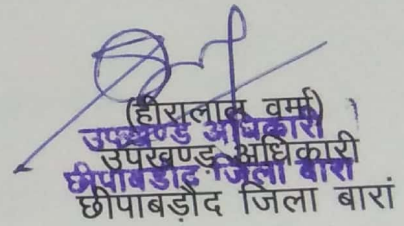 (हीरालाल वर्मा)
उपखण्ड अधिकारी
उपखण्ड अधिकारी
छीपाबडौद जिला बारां
छीपाबड़ौद जिला बारां